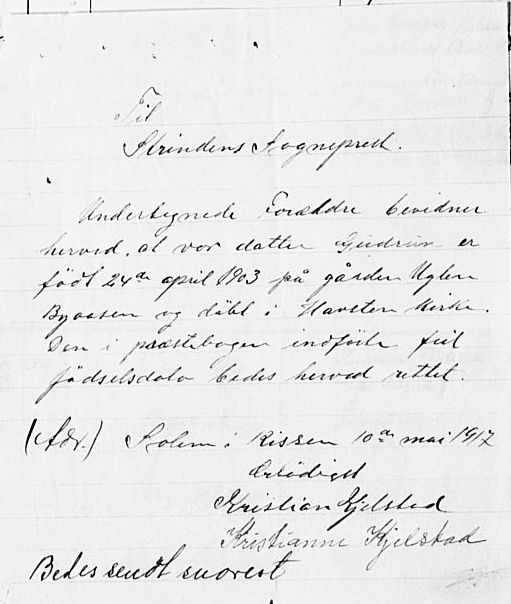 Til
Strindens Sogneprest.
Undertegnede Forældre bevidner
herved, at vor datter Gudrun er
født 24de april 1903 på gården Uglen
Byaasen og døbt i Havsten Kirke.
Den i præstebogen indførte feil
fødselsdato bedes herved rettet.
(Adr.) Solem i Rissen 10de mai 1917
Ærbødigst
Kristian Kjelstad
Kristianne Kjelstad
Bedes sendt snarest